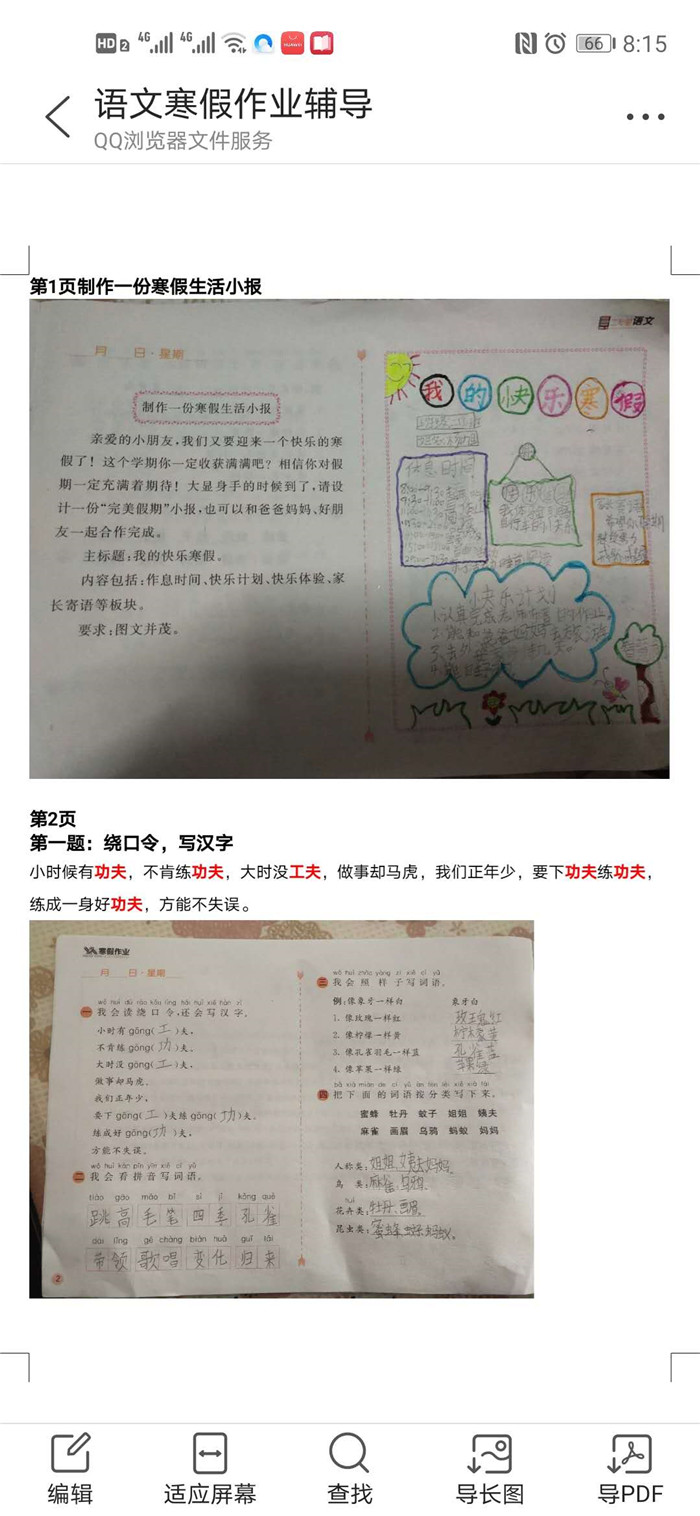 HD 2 4G 4G 66 8:15
语文寒假作业辅导
QQ浏览器文件服务
第1页制作一份寒假生活小报
语文
月 日·星期
制作一份寒假生活小报
亲爱的小朋友,我们又要迎来一个快乐的寒
假了!这个学期你一定收获满满吧?相信你对假
期一定充满着期待!大显身手的时候到了,请设
计一份“完美假期”小报,也可以和爸爸妈妈、好朋
友一起合作完成。
主标题:我的快乐寒假。
内容包括:作息时间、快乐计划、快乐体验、家
长寄语等板块。
要求:图文并茂。
我的快乐寒假
作息时间
快乐计划
第2页
第一题：绕口令，写汉字
小时候有功夫，不肯练功夫，大时没工夫，做事却马虎，我们正年少，要下功夫练功夫，
练成一身好功夫，方能不失误。
寒假作业
月 日·星期
wǒ huì dú rào kǒu lìng hái huì xiě hàn zì
一 我会读绕口令,还会写汉字。
小时有 gōng(工)夫,
不肯练 gōng(功)夫。
大时没 gōng(工)夫,
做事却马虎。
我们正年少,
要下 gōng(工)夫练 gōng(功)夫。
练成好 gōng(功)夫,
方能不失误。
wǒ huì kàn pīn yīn xiě cí yǔ
二 我会看拼音写词语。
tiào gāo máo bǐ sì jì kǒng què
跳高 毛笔 四季 孔雀
dài lǐng gē chàng biàn huà guī lái
带领 歌唱 变化 归来
2
wǒ huì zhào yàng zi xiě cí yǔ
三 我会照样子写词语。
例:像象牙一样白 象牙白
1. 像玫瑰一样红
2. 像柠檬一样黄
3. 像孔雀羽毛一样蓝 孔雀蓝
4. 像苹果一样绿 苹果绿
bǎ xià miàn de cí yǔ àn fēn lèi xiě xià lái
四 把下面的词语按分类写下来。
蜜蜂 牡丹 蚊子 姐姐 姨夫
麻雀 画眉 乌鸦 蚂蚁 妈妈
人称类:姐姐 姨夫 妈妈。
鸟 类:麻雀 乌鸦
huì
花卉类:牡丹、画眉。
昆虫类:蜜蜂 蚂蚁。
编辑 适应屏幕 查找 导长图 导PDF